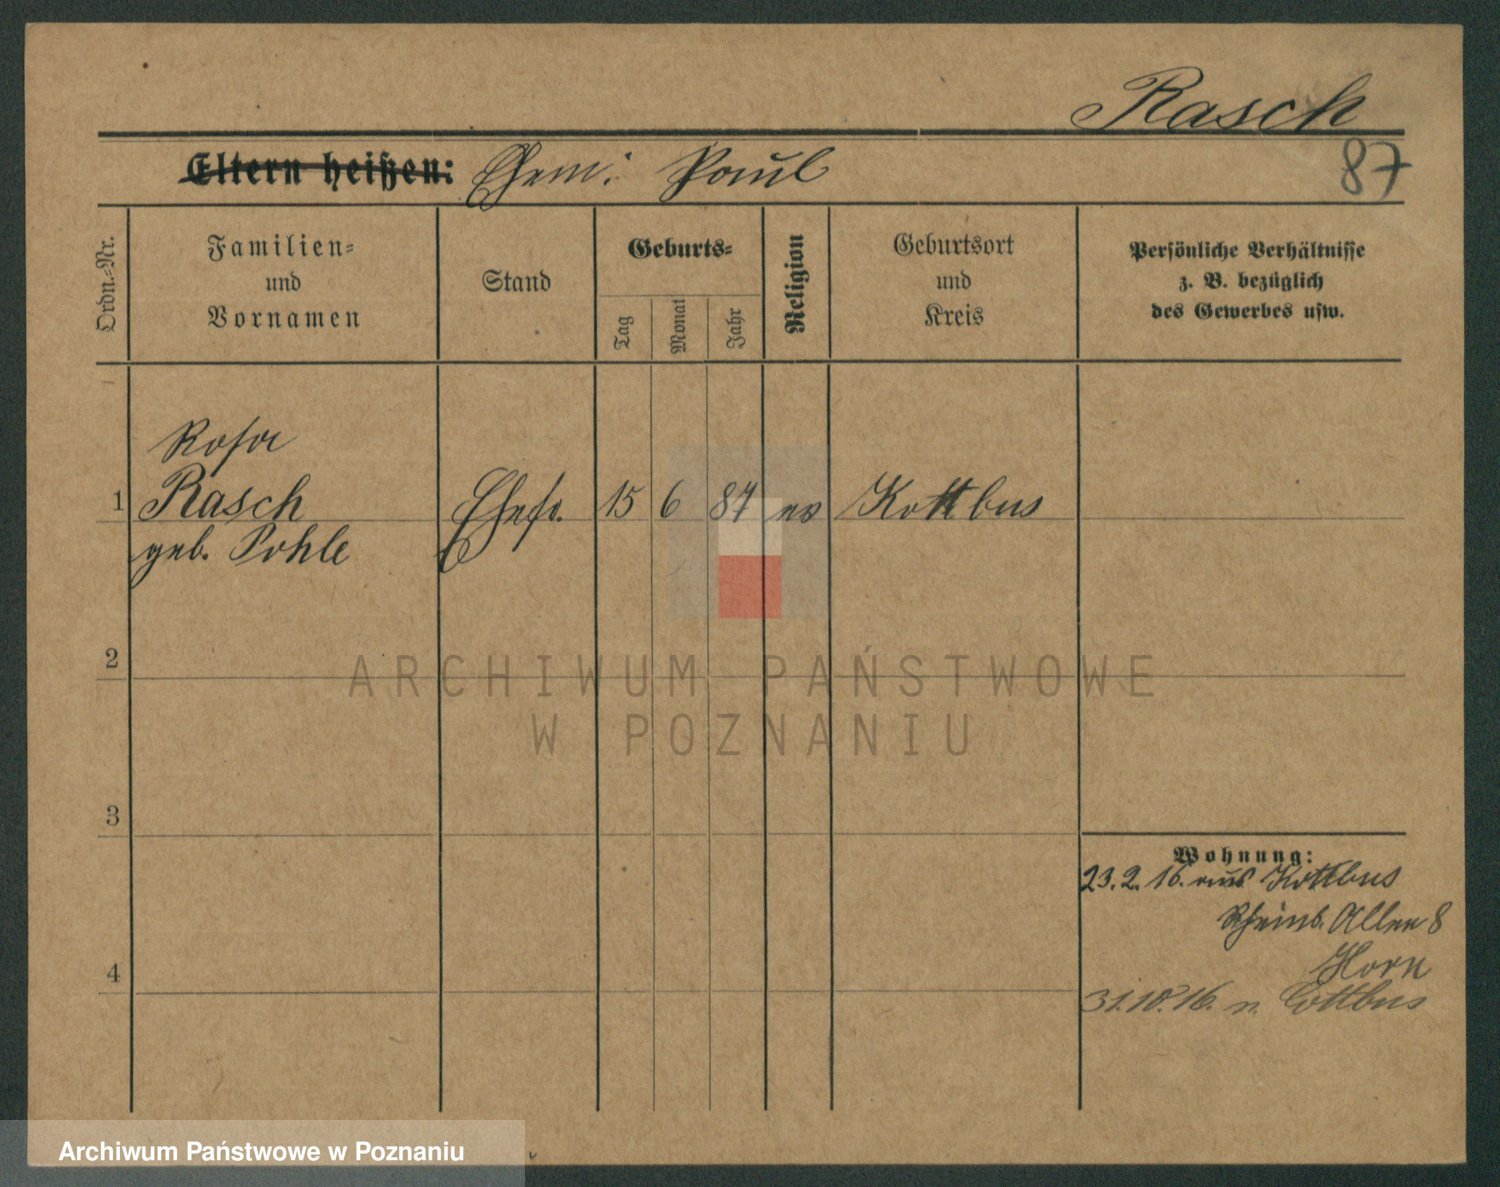 Rasch
Eltern heißen: Ehem: Paul
87
Ordn.-Nr.
Familien-
und
Vornamen
Stand
Geburts-
Tag
Monat
Jahr
Religion
Geburtsort
und
Kreis
Persönliche Verhältnisse
z. B. bezüglich
des Gewerbes usw.
Rosa
1 Rasch Ehefr. 15 6 87 ev Kottbus
geb. Pohle
2
3
4
Wohnung:
23.2.16. aus Kottbus
Rheinb. Allee 8
Horn
31.10.16. n. Cottbus
ARCHIWUM PAŃSTWOWE
W POZNANIU
Archiwum Państwowe w Poznaniu